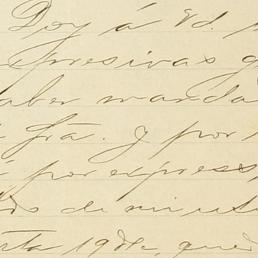 Doy á Vd.
presivas g
aber manda
Sra. y por
por espres
de mi
rta 19 de, que